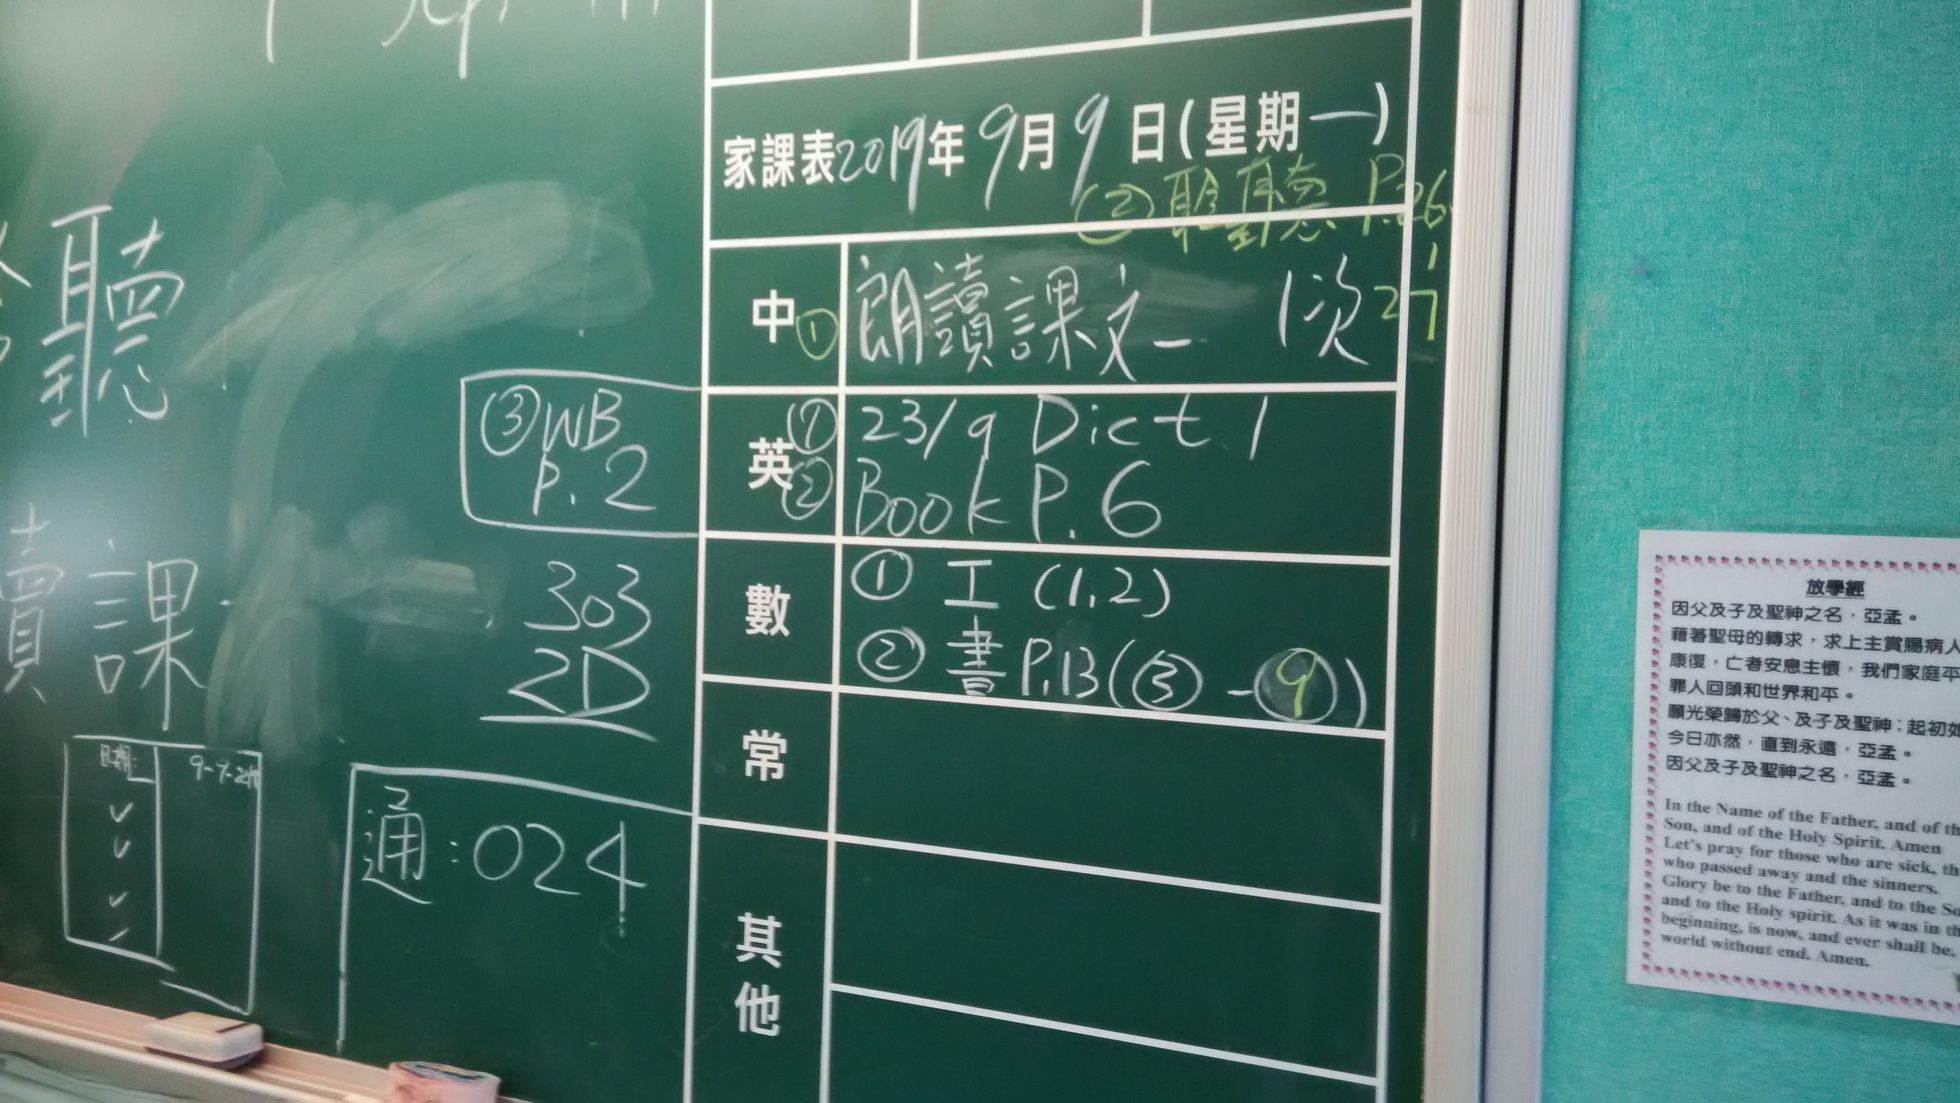 聽
課
日期: 9-9-2019
③WB
P.2
303
2D
通:024
家課表2019年9月9日(星期一)
② 聆聽 P.26,
27
中 ① 朗讀課文一 1次
英 ① 23/9 Dict. 1
② Book P.6
數 ① 工 (1,2)
② 書 P.13(③-⑨)
常
其他
放學經
因父及子及聖神之名,亞孟。
藉著聖母的轉求,求上主賞賜病人
康復,亡者安息主懷,我們家庭平
罪人回頭和世界和平。
願光榮歸於父、及子及聖神;起初如
今日亦然,直到永遠,亞孟。
因父及子及聖神之名,亞孟。
In the Name of the Father, and of th
Son, and of the Holy Spirit. Amen
Let's pray for those who are sick, th
who passed away and the sinners.
Glory be to the Father, and to the So
and to the Holy spirit. As it was in th
beginning, is now, and ever shall be,
world without end. Amen.